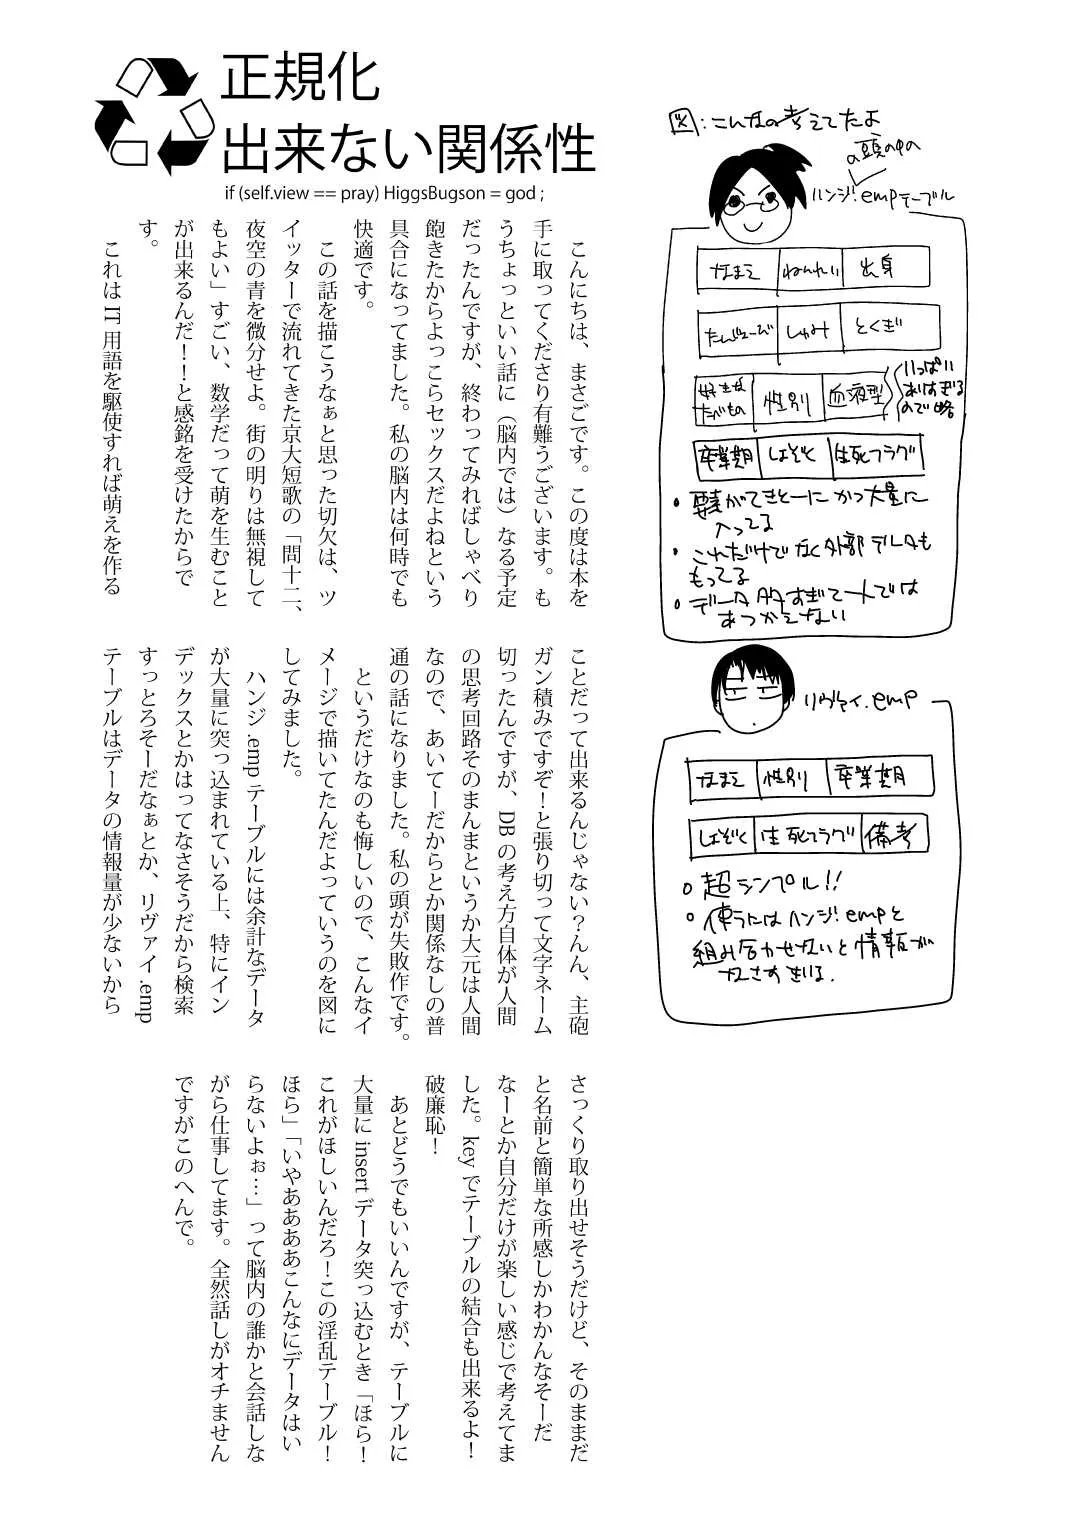 正規化
出来ない関係性
if (self.view == pray) HiggsBugson = god ;
こんにちは、まさごです。この度は本を
手に取ってくださり有難うございます。も
うちょっといい話に（脳内では）なる予定
だったんですが、終わってみればしゃべり
飽きたからよっこらセックスだよねという
具合になってました。私の脳内は何時でも
快適です。
この話を描こうなぁと思った切欠は、ツ
イッターで流れてきた京大短歌の「問十二、
夜空の青を微分せよ。街の明りは無視して
もよい」すごい、数学だって萌を生むこと
が出来るんだ！！と感銘を受けたからで
す。
これは IT 用語を駆使すれば萌えを作る
ことだって出来るんじゃない？んん、主砲
ガン積みですぞ！と張り切って文字ネーム
切ったんですが、DB の考え方自体が人間
の思考回路そのまんまというか大元は人間
なので、あいてーだからとか関係なしの普
通の話になりました。私の頭が失敗作です。
というだけなのも悔しいので、こんなイ
メージで描いてたんだよっていうのを図に
してみました。
ハンジ .emp テーブルには余計なデータ
が大量に突っ込まれている上、特にイン
デックスとかはってなさそうだから検索
すっとろそーだなぁとか、リヴァイ .emp
テーブルはデータの情報量が少ないから
さっくり取り出せそうだけど、そのままだ
と名前と簡単な所感しかわかんなそーだ
なーとか自分だけが楽しい感じで考えてま
した。key でテーブルの結合も出来るよ！
破廉恥！
あとどうでもいいんですが、テーブルに
大量に insert データ突っ込むとき「ほら！
これがほしいんだろ！この淫乱テーブル！
ほら」「いやああああこんなにデータはい
らないよぉ…」って脳内の誰かと会話しな
がら仕事してます。全然話しがオチません
ですがこのへんで。
図:こんなの考えてたよ
の頭の中の
ハンジ.empテーブル
なまえ ねんれい 出身
たんじょーび しゅみ とくぎ
好きな たべもの 性別 血液型
いっぱい
ありすぎる
ので略
卒業期 しょぞく 生死フラグ
・要素がてきとーにかつ大量に
入ってる
・これだけでなく外部データも
もってる
・データ多すぎて一人では
あつかえない
リヴァイ.emp
なまえ 性別 卒業期
しょぞく 生死フラグ 備考
○超シンプル!!
○使うにはハンジ.empと
組み合わせないと情報が
なさすぎる.